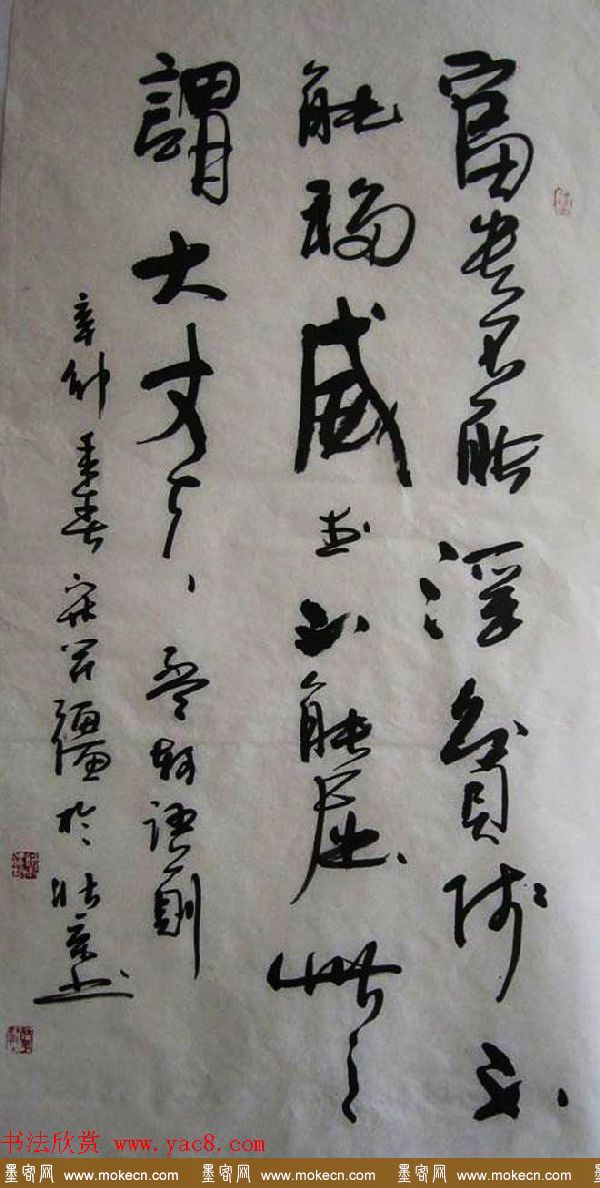 富貴不能淫貧賤不
能移威武不能屈此之
謂大丈夫 孟軻語一則
辛卯春疆於書
书法欣赏 www.yac8.com
墨客网 www.mokecn.com 墨客网 www.mokecn.com 墨客网 www.mokecn.com